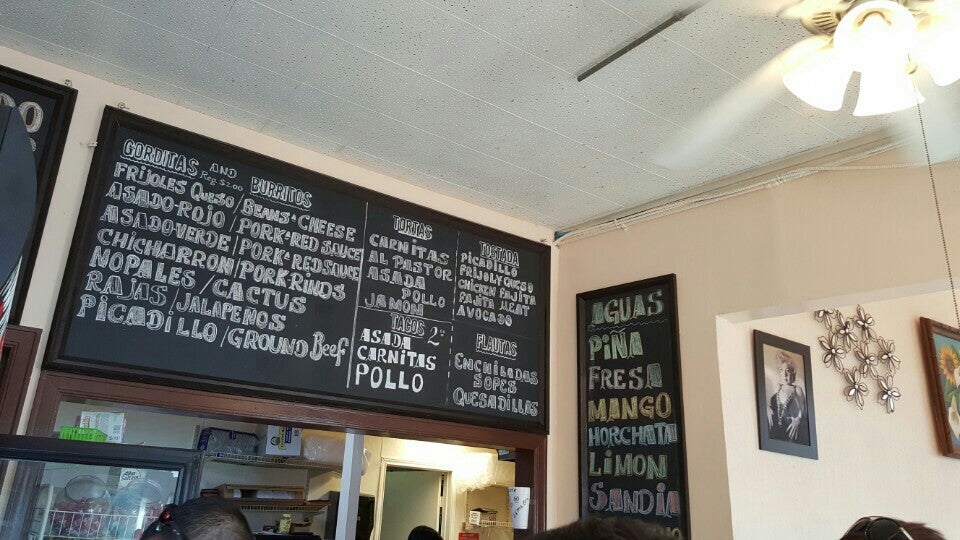 GORDITAS AND BURRITOS
Reg $2.00
FRIJOLES QUESO / BEANS & CHEESE
ASADO-ROJO / PORK & RED SAUCE
ASADO-VERDE / PORK & RED SAUCE
CHICHARRON / PORK RINDS
NOPALES / CACTUS
RAJAS / JALAPENOS
PICADILLO / GROUND Beef
TORTAS
CARNITAS
AL PASTOR
ASADA
POLLO
JAMON
TACOS
ASADA
CARNITAS
POLLO
TOSTADA
PICADILLO
FRIJOL Y QUESO
CHICKEN FAJITA
FAJITA MEAT
AVOCADO
FLAUTAS
ENCHILADAS
SOPES
QUESADILLAS
AGUAS
PIÑA
FRESA
MANGO
HORCHATA
LIMON
SANDIA